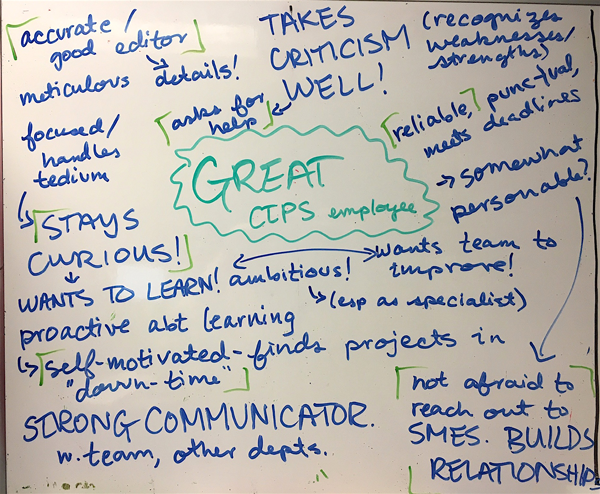 accurate/
good editor
meticulous details!
focused/
handles
tedium
TAKES
CRITICISM
WELL!
asks for
help
(recognizes
weaknesses/
strengths)
reliable, punctual,
meets deadlines
somewhat
personable?
GREAT
CIPS employee
STAYS
CURIOUS!
WANTS TO LEARN! ambitious! wants team to
improve!
(esp as specialist)
proactive abt learning
self-motivated-finds projects in
"down-time"
STRONG COMMUNICATOR.
w. team, other depts.
not afraid to
reach out to
SMES. BUILDS
RELATIONSHIPS